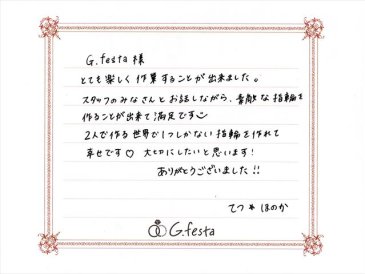 G.festa 様
とても楽しく作業することが出来ました。
スタッフのみなさんとお話しながら、素敵な指輪を
作ることが出来て満足です
2人で作る世界で1つしかない指輪を作れて
幸せです♡ 大切にしたいと思います!
ありがとうございました!!
てつ * ほのか
G.festa